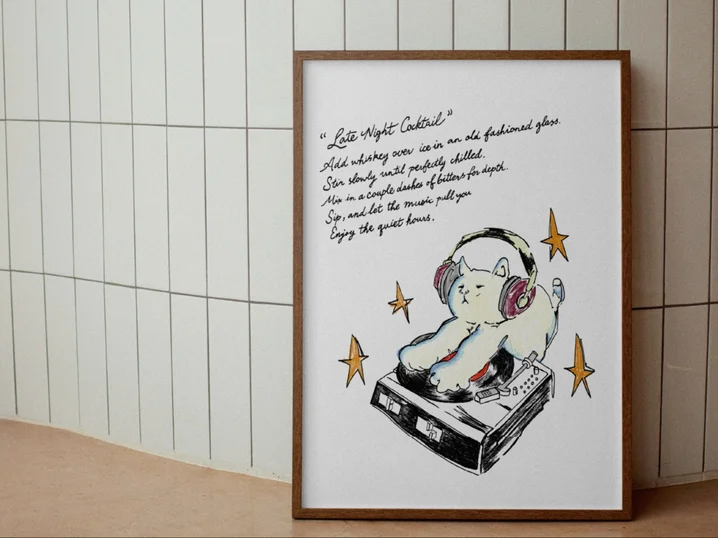 “Late Night Cocktail”
Add whiskey over ice in an old fashioned glass.
Stir slowly until perfectly chilled.
Mix in a couple dashes of bitters for depth.
Sip, and let the music pull you
Enjoy the quiet hours.